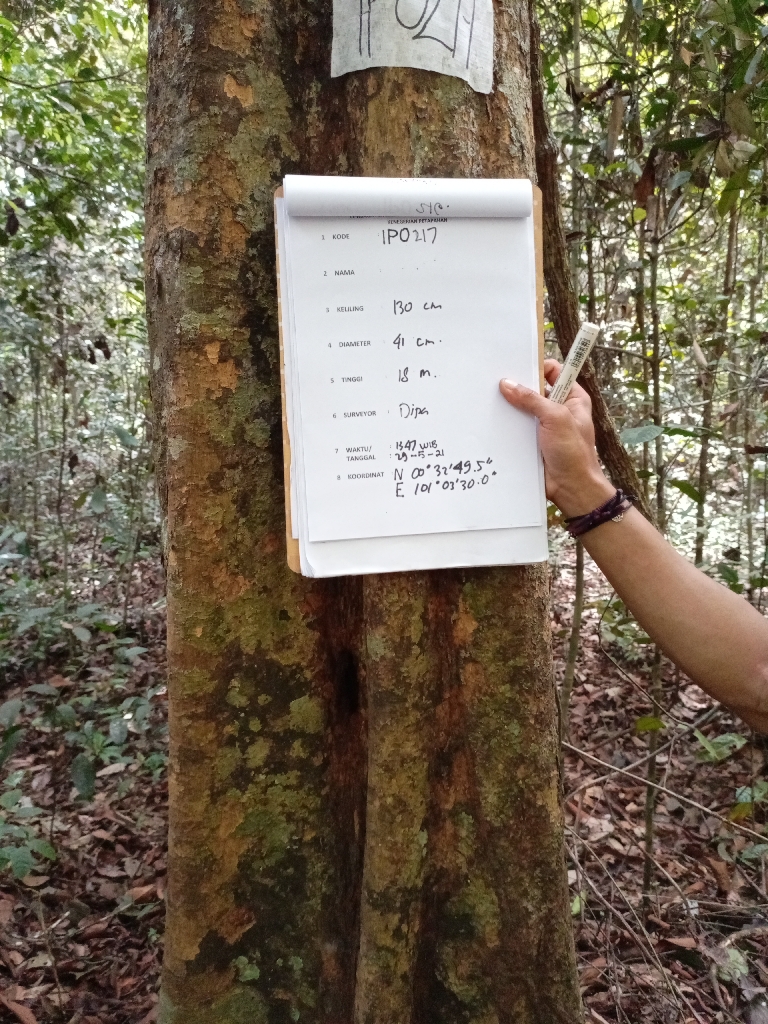 1 KODE IPO217
2 NAMA
3 KELILING : 130 cm
4 DIAMETER : 41 cm.
5 TINGGI : 18 m.
6 SURVEYOR : Dipa
7 WAKTU/ : 1347 WIB
TANGGAL : 29-5-21
8 KOORDINAT N 00° 32' 49.5"
E 101° 03' 30.0"